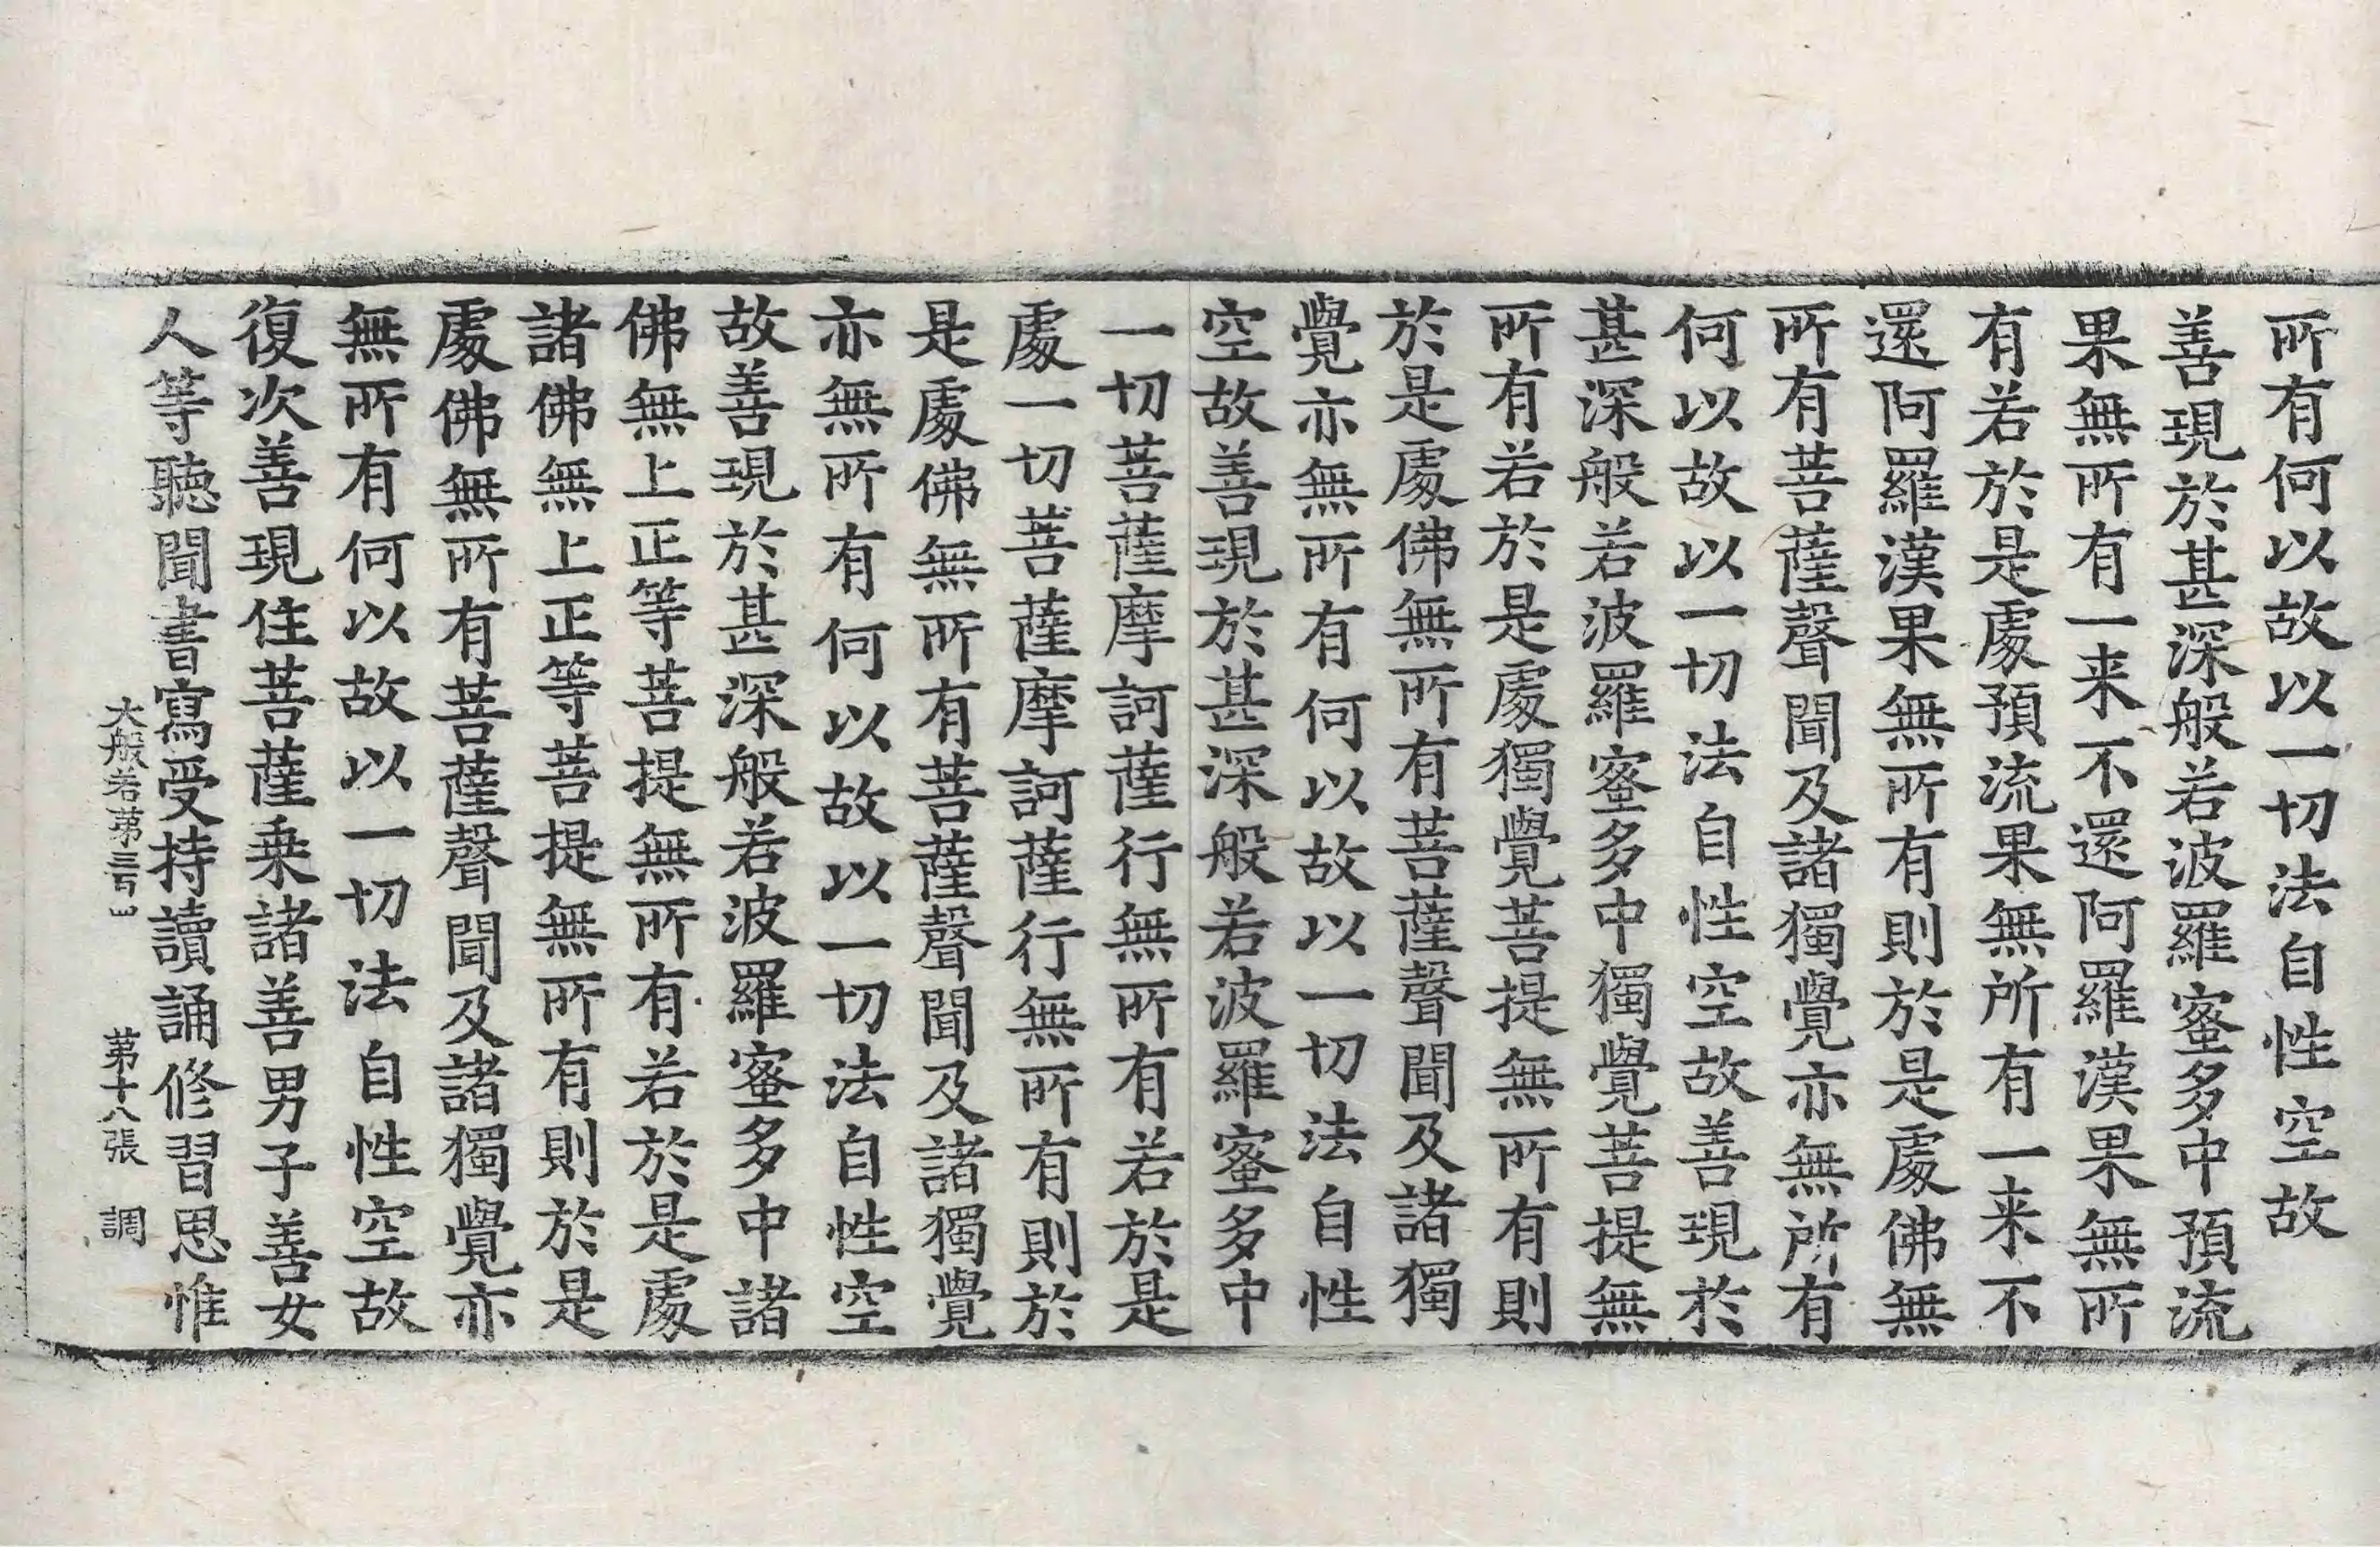 所有何以故以一切法自性空故
善現於甚深般若波羅蜜多中預流
果無所有一来不還阿羅漢果無所
有若於是處預流果無所有一来不
還阿羅漢果無所有則於是處佛無
所有菩薩聲聞及諸獨覺亦無所有
何以故以一切法自性空故善現於
甚深般若波羅蜜多中獨覺菩提無
所有若於是處獨覺菩提無所有則
於是處佛無所有菩薩聲聞及諸獨
覺亦無所有何以故以一切法自性
空故善現於甚深般若波羅蜜多中
一切菩薩摩訶薩行無所有若於是
處一切菩薩摩訶薩行無所有則於
是處佛無所有菩薩聲聞及諸獨覺
亦無所有何以故以一切法自性空
故善現於甚深般若波羅蜜多中諸
佛無上正等菩提無所有若於是處
諸佛無上正等菩提無所有則於是
處佛無所有菩薩聲聞及諸獨覺亦
無所有何以故以一切法自性空故
復次善現住菩薩乗諸善男子善女
人等聽聞書寫受持讀誦修習思惟
大般若第三百 第十八張 調